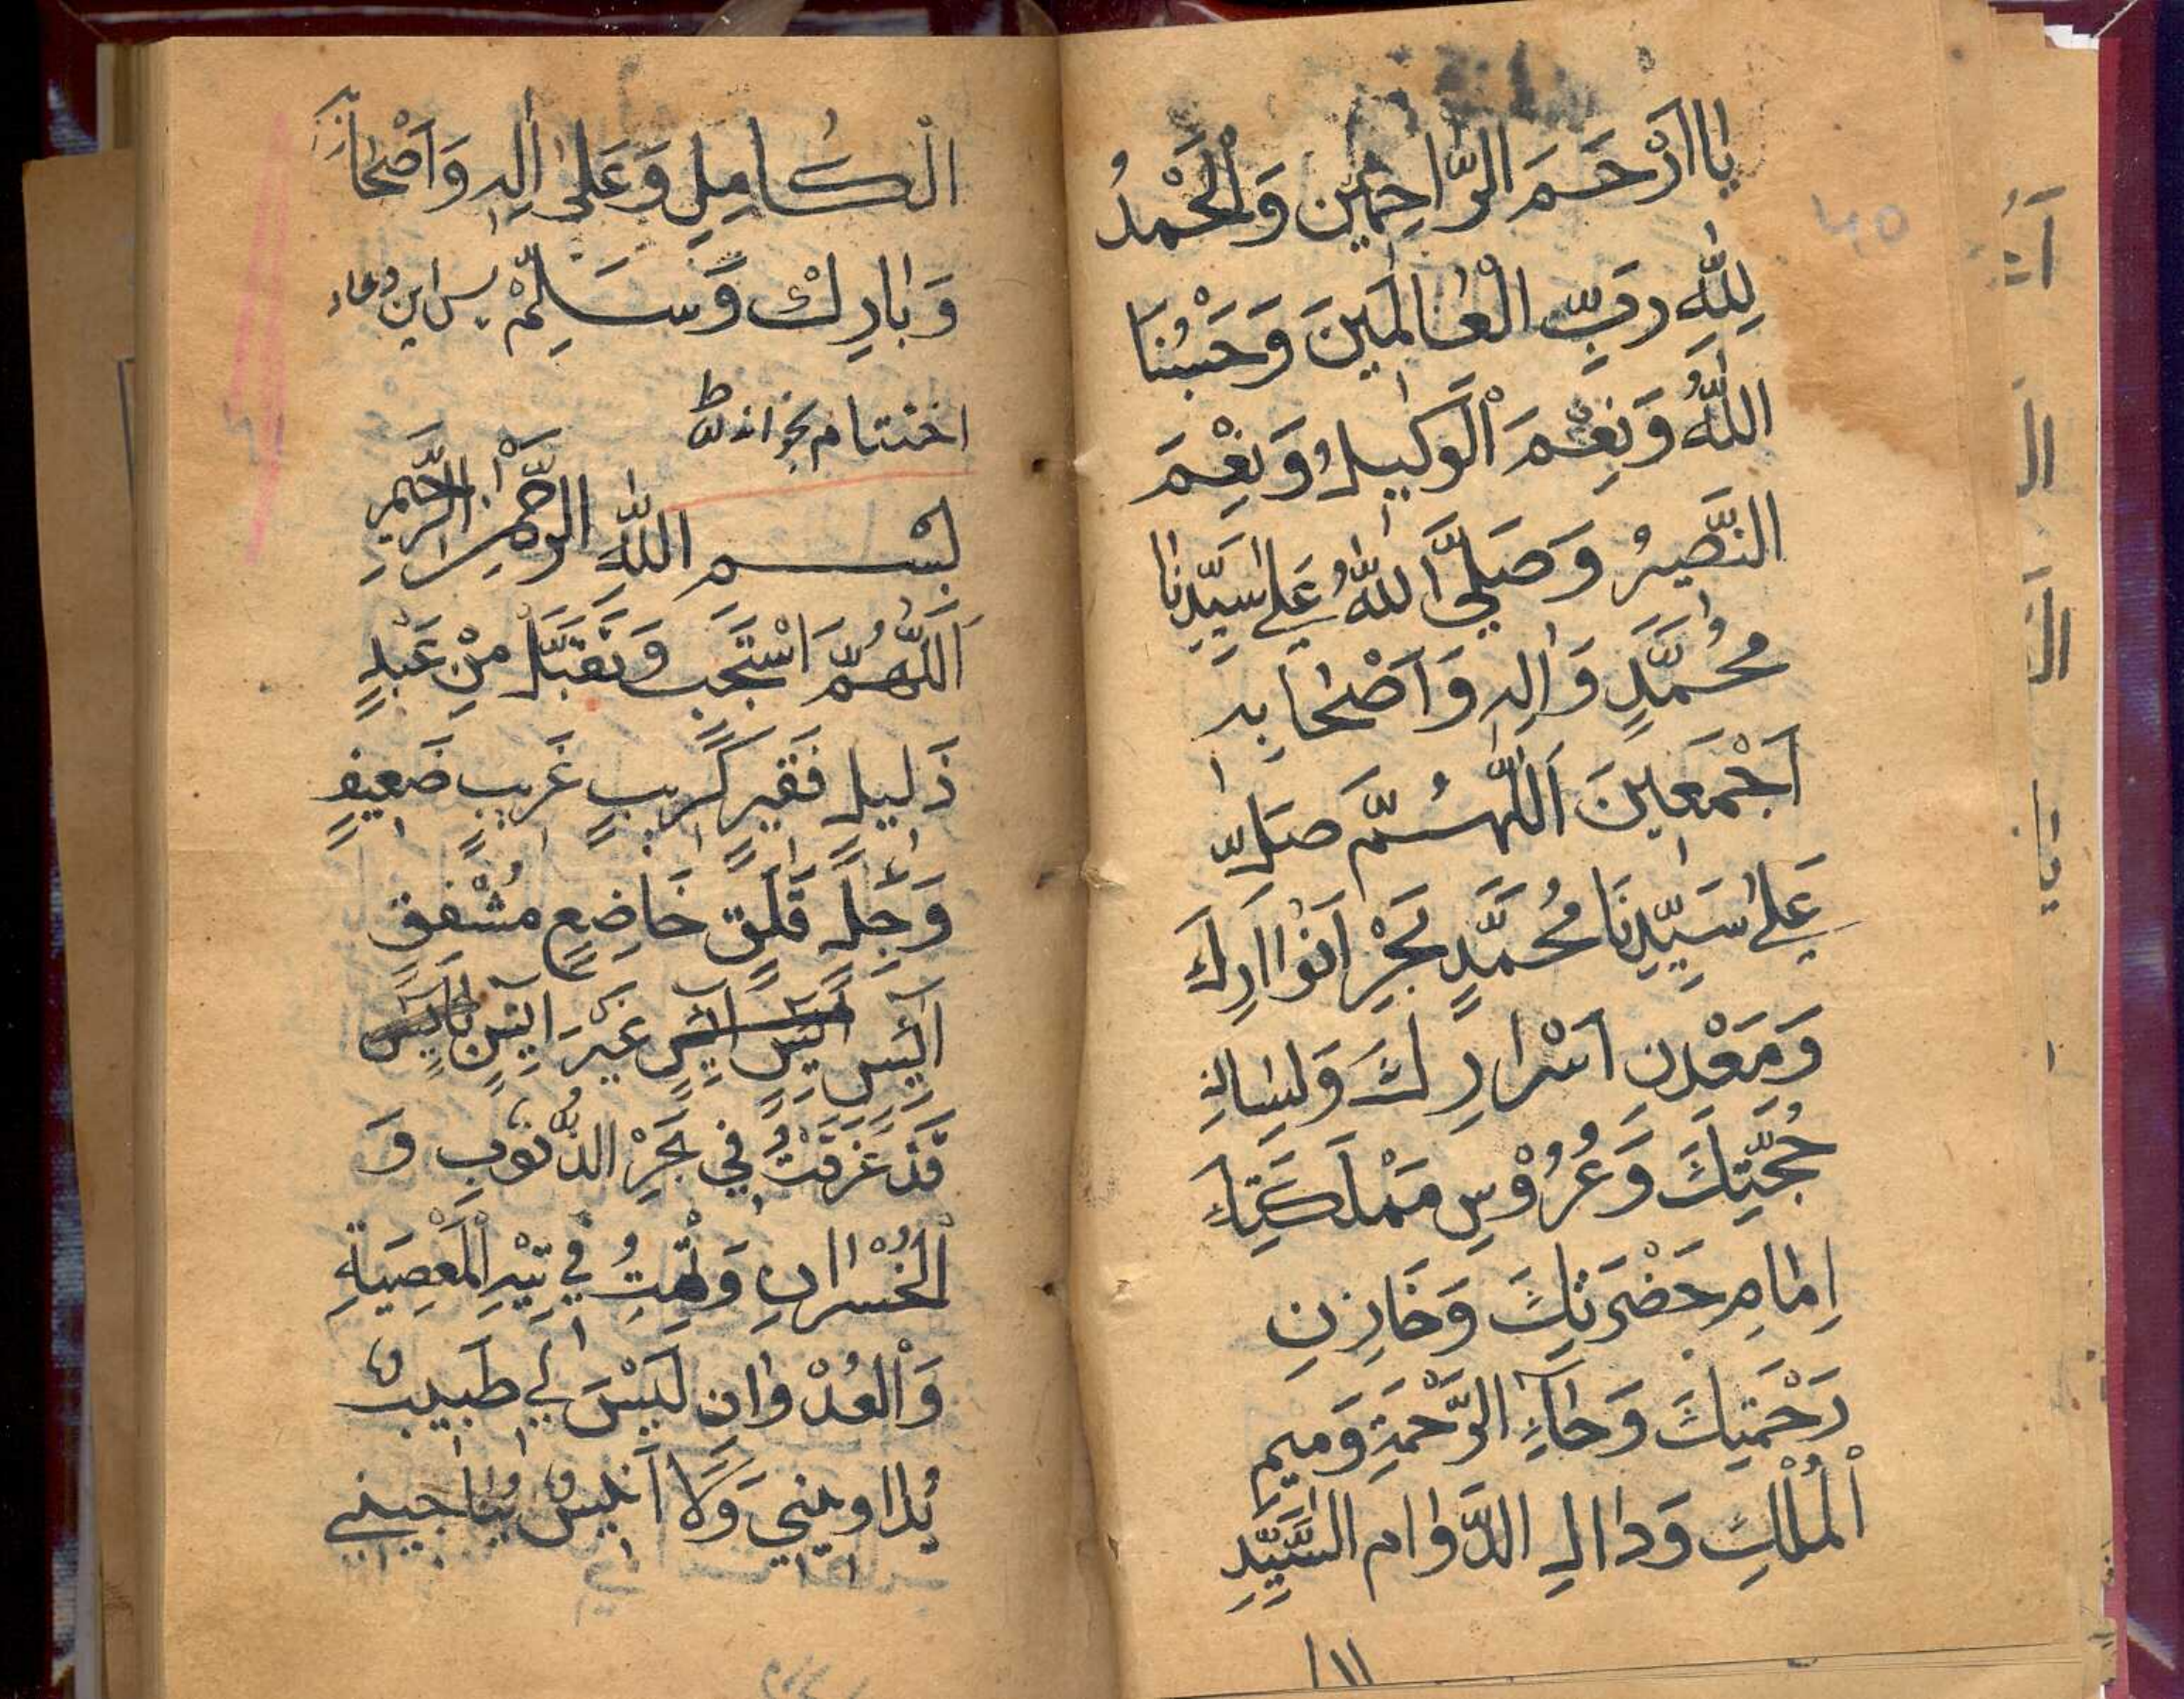 يَا اَرْحَمَ الرَّاحِمِيْنَ وَالْحَمْدُ
لِلّٰهِ رَبِّ الْعَالَمِيْنَ وَحَسْبُنَا
اللّٰهُ وَنِعْمَ الْوَكِيْلُ وَنِعْمَ
النَّصِيْرُ وَصَلَّى اللّٰهُ عَلٰى سَيِّدِنَا
مُحَمَّدٍ وَاٰلِهٖ وَاَصْحَابِهٖ
اَجْمَعِيْنَ اَللّٰهُمَّ صَلِّ
عَلٰى سَيِّدِنَا مُحَمَّدٍ بَحْرِ اَنْوَارِكَ
وَمَعْدِنِ اَسْرَارِكَ وَلِسَانِ
حُجَّتِكَ وَعُرُوْسِ مَمْلَكَتِكَ
اِمَامِ حَضْرَتِكَ وَخَازِنِ
رَحْمَتِكَ وَحَآءِ الرَّحْمَةِ وَمِيْمِ
الْمُلْكِ وَدَالِ الدَّوَامِ السَّيِّدِ
١١
الْكَامِلِ وَعَلٰى اٰلِهٖ وَاَصْحَابِهٖ
وَبَارِكْ وَسَلِّمْ پس اين دعاء
اختتام بخواند
بِسْمِ اللّٰهِ الرَّحْمٰنِ الرَّحِيْمِ
اَللّٰهُمَّ اسْتَجِبْ وَتَقَبَّلْ مِنْ عَبْدٍ
ذَلِيْلٍ فَقِيْرٍ كَرِيْبٍ غَرِيْبٍ ضَعِيْفٍ
وَجِلٍ قَلِقٍ خَاضِعٍ مُشْفِقٍ
اٰئِسٍ غَيْرَ
قَدْ غَرِقْتُ فِيْ بَحْرِ الذُّنُوْبِ وَ
الْخُسْرَانِ وَتِهْتُ فِيْ تِيْهِ الْمَعْصِيَةِ
وَالْعُدْوَانِ لَيْسَ لِيْ طَبِيْبٌ
يُدَاوِيْنِيْ وَلَا اَنِيْسٌ يُنَاجِيْنِيْ